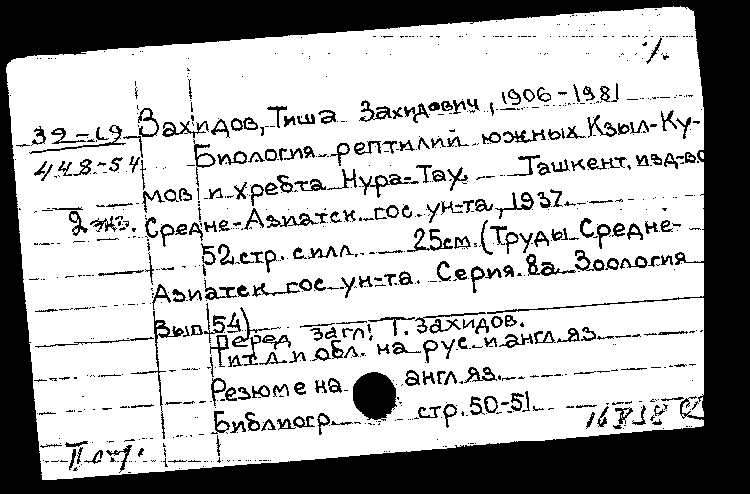 39-19
448-54
2 экз.
Захидов, Тиша Захидович, 1906-1981
Биология рептилий южных Кзыл-Ку-
мов и хребта Нура-Тау. Ташкент, изд-во
Средне-Азиатск. гос. ун-та, 1937.
52 стр. с илл. 25 см. (Труды Средне-
Азиатск гос ун-та. Серия 8а. Зоология
Вып. 54)
Перед загл: Т. Захидов.
Тит. л. и обл. на рус и англ яз.
Резюме на англ яз.
Библиогр. стр. 50-51.